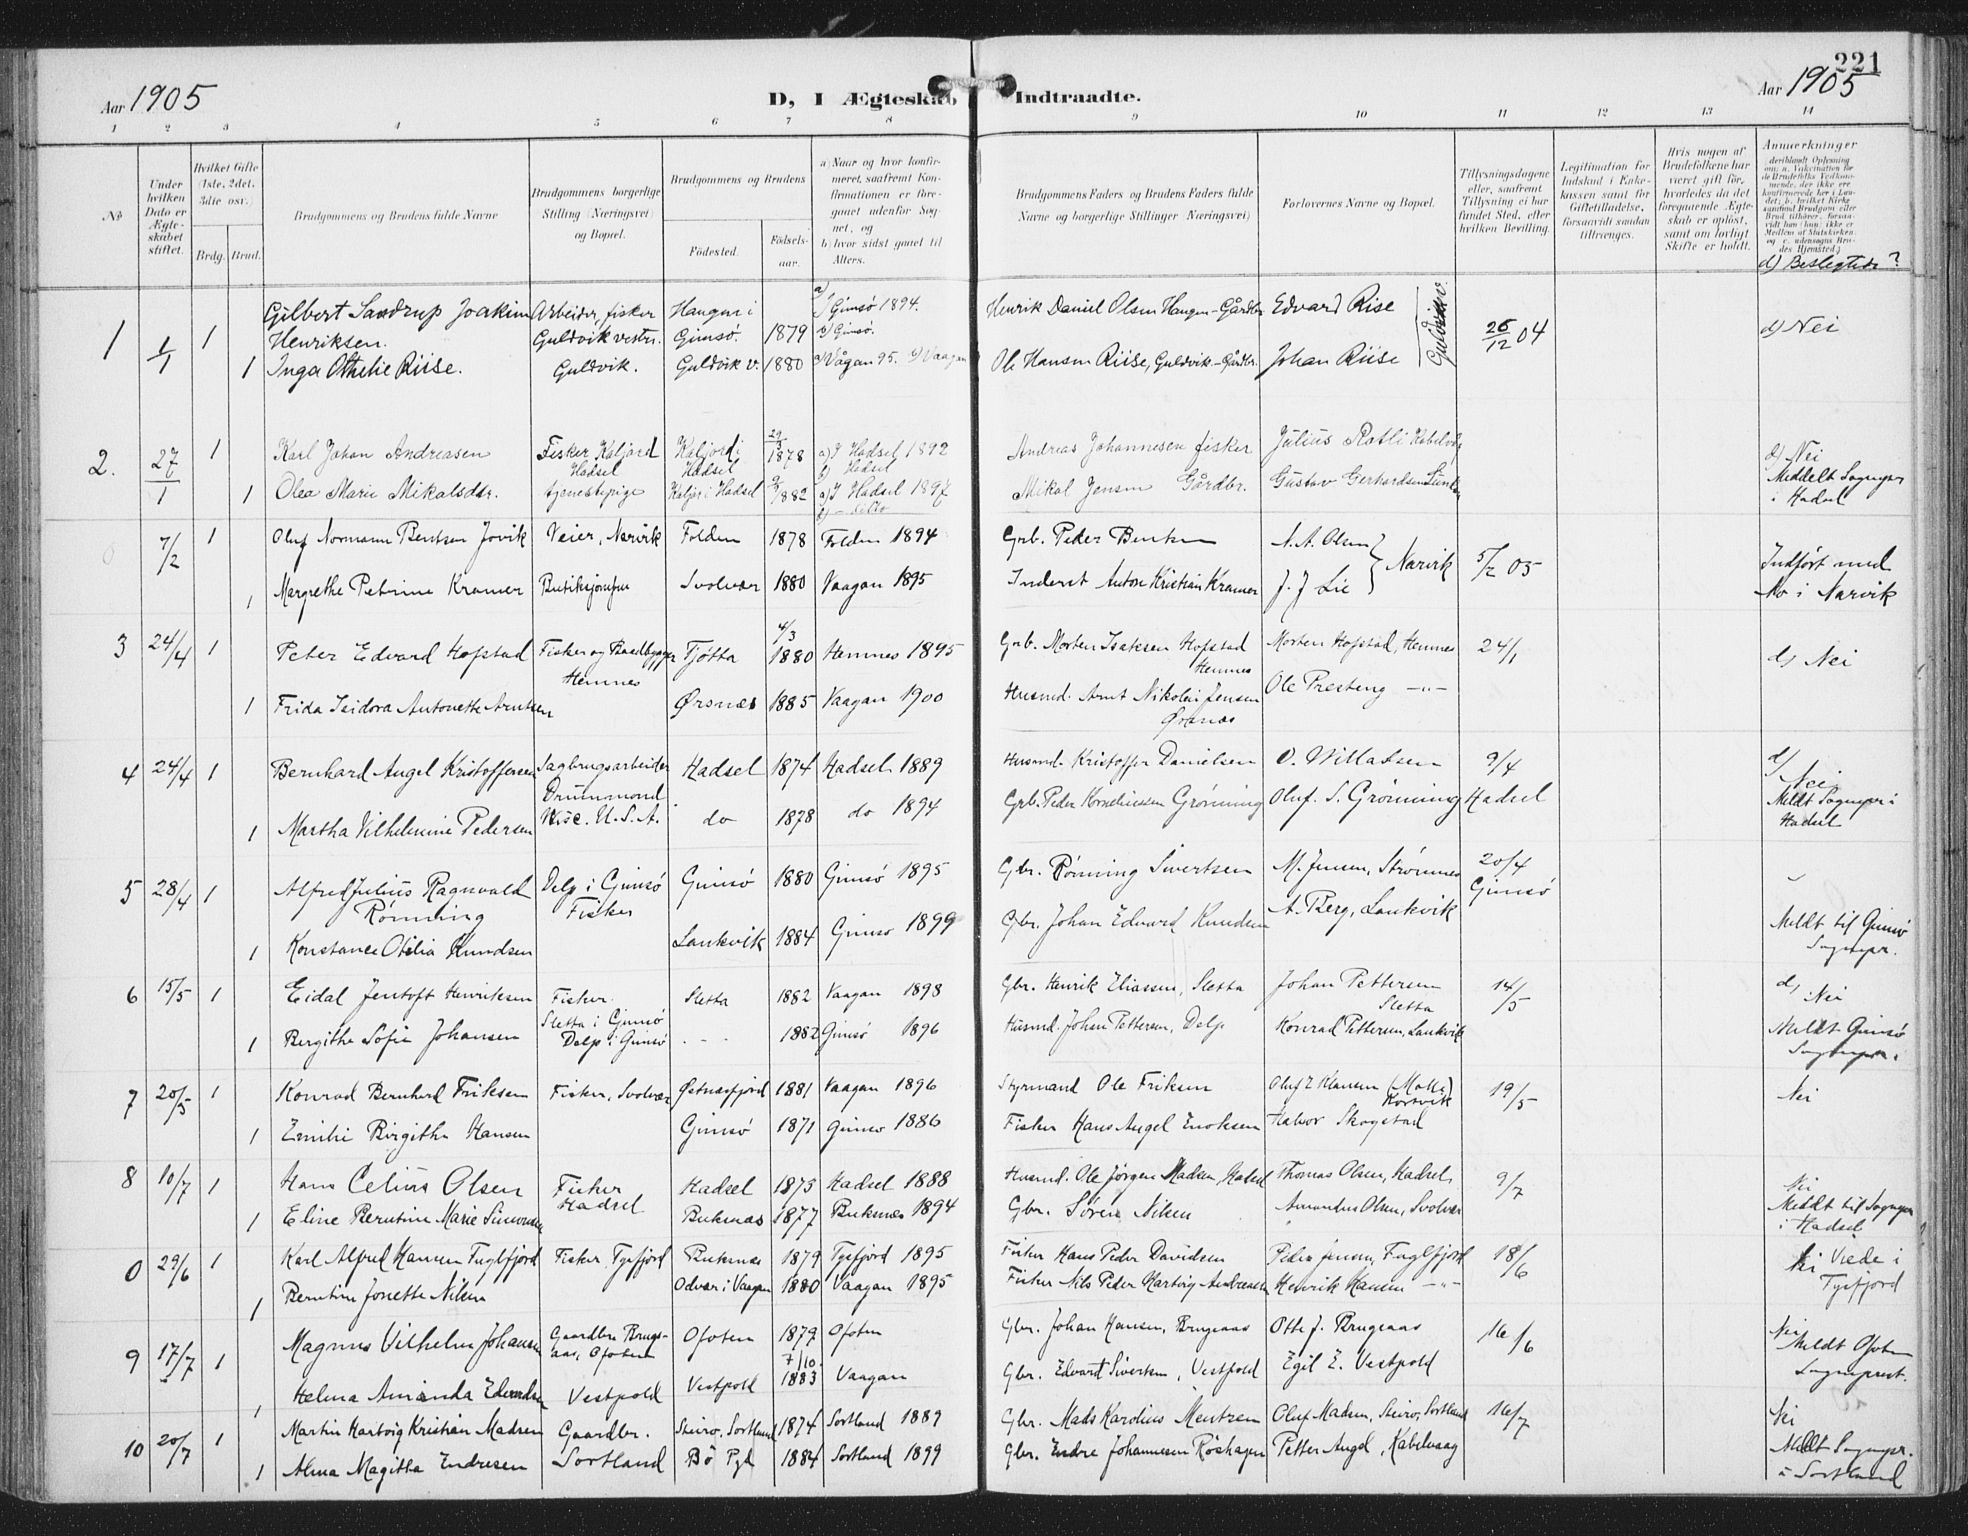 221
Aar 1905
D, I Ægteskab Indtraadte.
Aar 1905
1 2 3 4 5 6 7 8 9 10 11 12 13 14
No
Under hvilken Dato er Ægteskabet stiftet.
Hvilket Gifte (1ste, 2det, 3die osv.)
Brdg. Brud.
Brudgommens og Brudens fulde Navne
Brudgommens borgerlige Stilling (Næringsvei) og Bopæl.
Brudgommens og Brudens
Födested. Födselsaar.
a) Naar og hvor konfirmeret, saafremt Konfirmationen er foregaaet udenfor Sognet, og
b) hvor sidst gaaet til Alters.
Brudgommens Faders og Brudens Faders fulde Navne og borgerlige Stillinger (Næringsvei)
Forlovernes Navne og Bopæl.
Tillysningsdagene eller, saafremt Tillysning ei har fundet Sted, efter hvilken Bevilling.
Legitimation for Indskud i Enkekassen samt for Giftetilladelse, forsaavidt saadan tiltrænges.
Hvis nogen af Brudefolkene har været gift för, hvorledes da det foregaaende Ægteskab er oplöst, samt om lovligt Skifte er holdt.
Anmerkninger
d) Beslegtede?
1 1/1 1 Gilbert Sandrup Joakim Arbeider, fisker Haugen i a) Gimsö 1894. Henrik Daniel Olsen Haugen - Gårdbr. Edvard Riise
Henriksen. Guldvik vestr. Gimsö. 1879 b) Gimsö. 26/12 04 d) Nei
1 Inga Othelie Riise. Guldvik. Guldvik v. 1880 a) Vågan 95. b) Vaagan Ole Hansen Riise, Guldvik - Gårdbr. Johan Riise
2. 27/1 1 Karl Johan Andreasen Fisker Kaljord Hadsel Kaljord i Hadsel 29/ 1878 a) I Hadsel 1892 b) Hadsel Andreas Johannesen fisker Julius Rotli Kabelvåg d) Nei
1 Olea Marie Mikalsdtr. tjenestepige Kaljor i Hadsel 1882 a) I Hadsel 1897 b) - ditto Mikal Jensen Gårdbr. Gustav Gerhardsen Meddelt Sogneper i Hadsel
7/2 1 Oluf Normann Bentsen Jovik Veier, Narvik Folden 1878 Folden 1894 Grb. Peder Bentsen A. A. Olsen Narvik 5/2 05 Indfört med
1 Margrethe Petrine Kramer Butiksjomfru Svolvær 1880 Vaagan 1895 Inderst Anton Kristian Kramer J. J Lie No i Narvik
3 24/4 1 Peter Edvard Hofstad Fisker og Baadbygger Hemnes Tjøtta 4/3 1880 Hemnes 1895 Grb. Morten Isaksen Hofstad Hemnes Morten Hofstad, Hemnes 24/1 d) Nei
1 Frida Isidora Antonette Arntsen Ørsnæs 1885 Vaagan 1900 Husmd. Arnt Nikolai Jensen Ørsnæs Ole Presteng -"-
4 24/4 1 Bernhard Angel Kristoffersen Sagbrugsarbeider Drummond Wisc. U.S.A. Hadsel 1874 Hadsel 1889 Husmd. Kristoffer Danielsen O. Willatsen 9/4 d) Nei
1 Martha Vilhelmine Pedersen do 1878 do 1894 Grb. Peder Korneliussen Grönning Oluf. S. Grönning Hadsel Meldt Sogneper i Hadsel
5 28/4 1 Alfred Julius Ragnvald Rönning Delp i Gimsö Fisker Gimsö 1880 Gimsö 1895 Gbr. Rönning Sivertsen M. Jensen, Strømnes 20/4 Gimsö
1 Konstance Otilia Knudsen Laukvik 1884 Gimsö 1899 Gbr. Johan Edvard Knudsen A. Berg, Laukvik Meldt til Gimsö Sogneper.
6 15/5 1 Eidal Jentoft Henriksen Fisker Sletta i Gimsö Sletta 1882 Vaagan 1898 Gbr. Henrik Eliassen, Sletta Johan Pettersen Sletta 14/5 d) Nei
1 Bergithe Sofie Johansen Delp i Gimsö - - - 1882 Gimsö 1896 Husmd. Johan Pettersen, Delp Konrad Pettersen, Laukvik Meldt Gimsö Sogneper.
7 20/5 1 Konrad Bernhard Eriksen Fisker, Svolvær Østnæsfjord 1881 Vaagan 1896 Styrmand Ole Eriksen Oluf Z Klausen (Molla) Kortvik 19/5 Nei
1 Emilie Birgithe Hansen Gimsö 1871 Gimsö 1886 Fisker Hans Angel Enoksen Halvor Skogstad
8 10/7 1 Hans Celius Olsen Fisker Hadsel Hadsel 1873 Hadsel 1888 Husmd. Ole Jørgen Madsen, Hadsel Thomas Olsen, Hadsel 9/7 Nei
1 Eline Berntine Marie Simonsen Buknæs 1877 Buknæs 1894 Gbr. Sören Nilsen Amandus Olsen, Svolvær Meldt til Sogneper i Hadsel
0 29/6 1 Karl Alfred Hansen Fuglfjord Fisker Tysfjord Buknæs 1879 Tysfjord 1895 Fisker Hans Peder Davidsen Peder Jensen, Fuglfjord 18/6 Nei Viede i Tysfjord
1 Berntine Jonette Nilsen Odvær i Vaagan 1880 Vaagan 1895 Fisker Nils Peder Hartvig Andreassen Henrik Hansen -"-
9 17/7 1 Magnus Vilhelm Johansen Gaardbr. Brugsaas, Ofoten Ofoten 1879 Ofoten Gbr. Johan Hansen, Brugsaas Otto J. Brugsaas 16/6 Nei
1 Helma Amanda Edvardsen Vestpold Vestpold 7/10 1883 Vaagan Gbr. Edvard Sivertsen, Vestpold Egil E. Vestpold Meldt Ofoten Sogneprest.
10 20/7 1 Martin Hartvig Kristian Madsen Gaardbr. Steiro, Sortland 1874 Sortland 1889 Gbr. Mads Karolius Mentzen Oluf Madsen, Steiro, Sortland 16/7 Nei
1 Alma Magitta Endresen Sortland Bö Pgl 1884 Sortland 1899 Gbr. Endre Johannesen Røshagen Petter Angel, Kabelvaag Meldt Sogneper. i Sortland